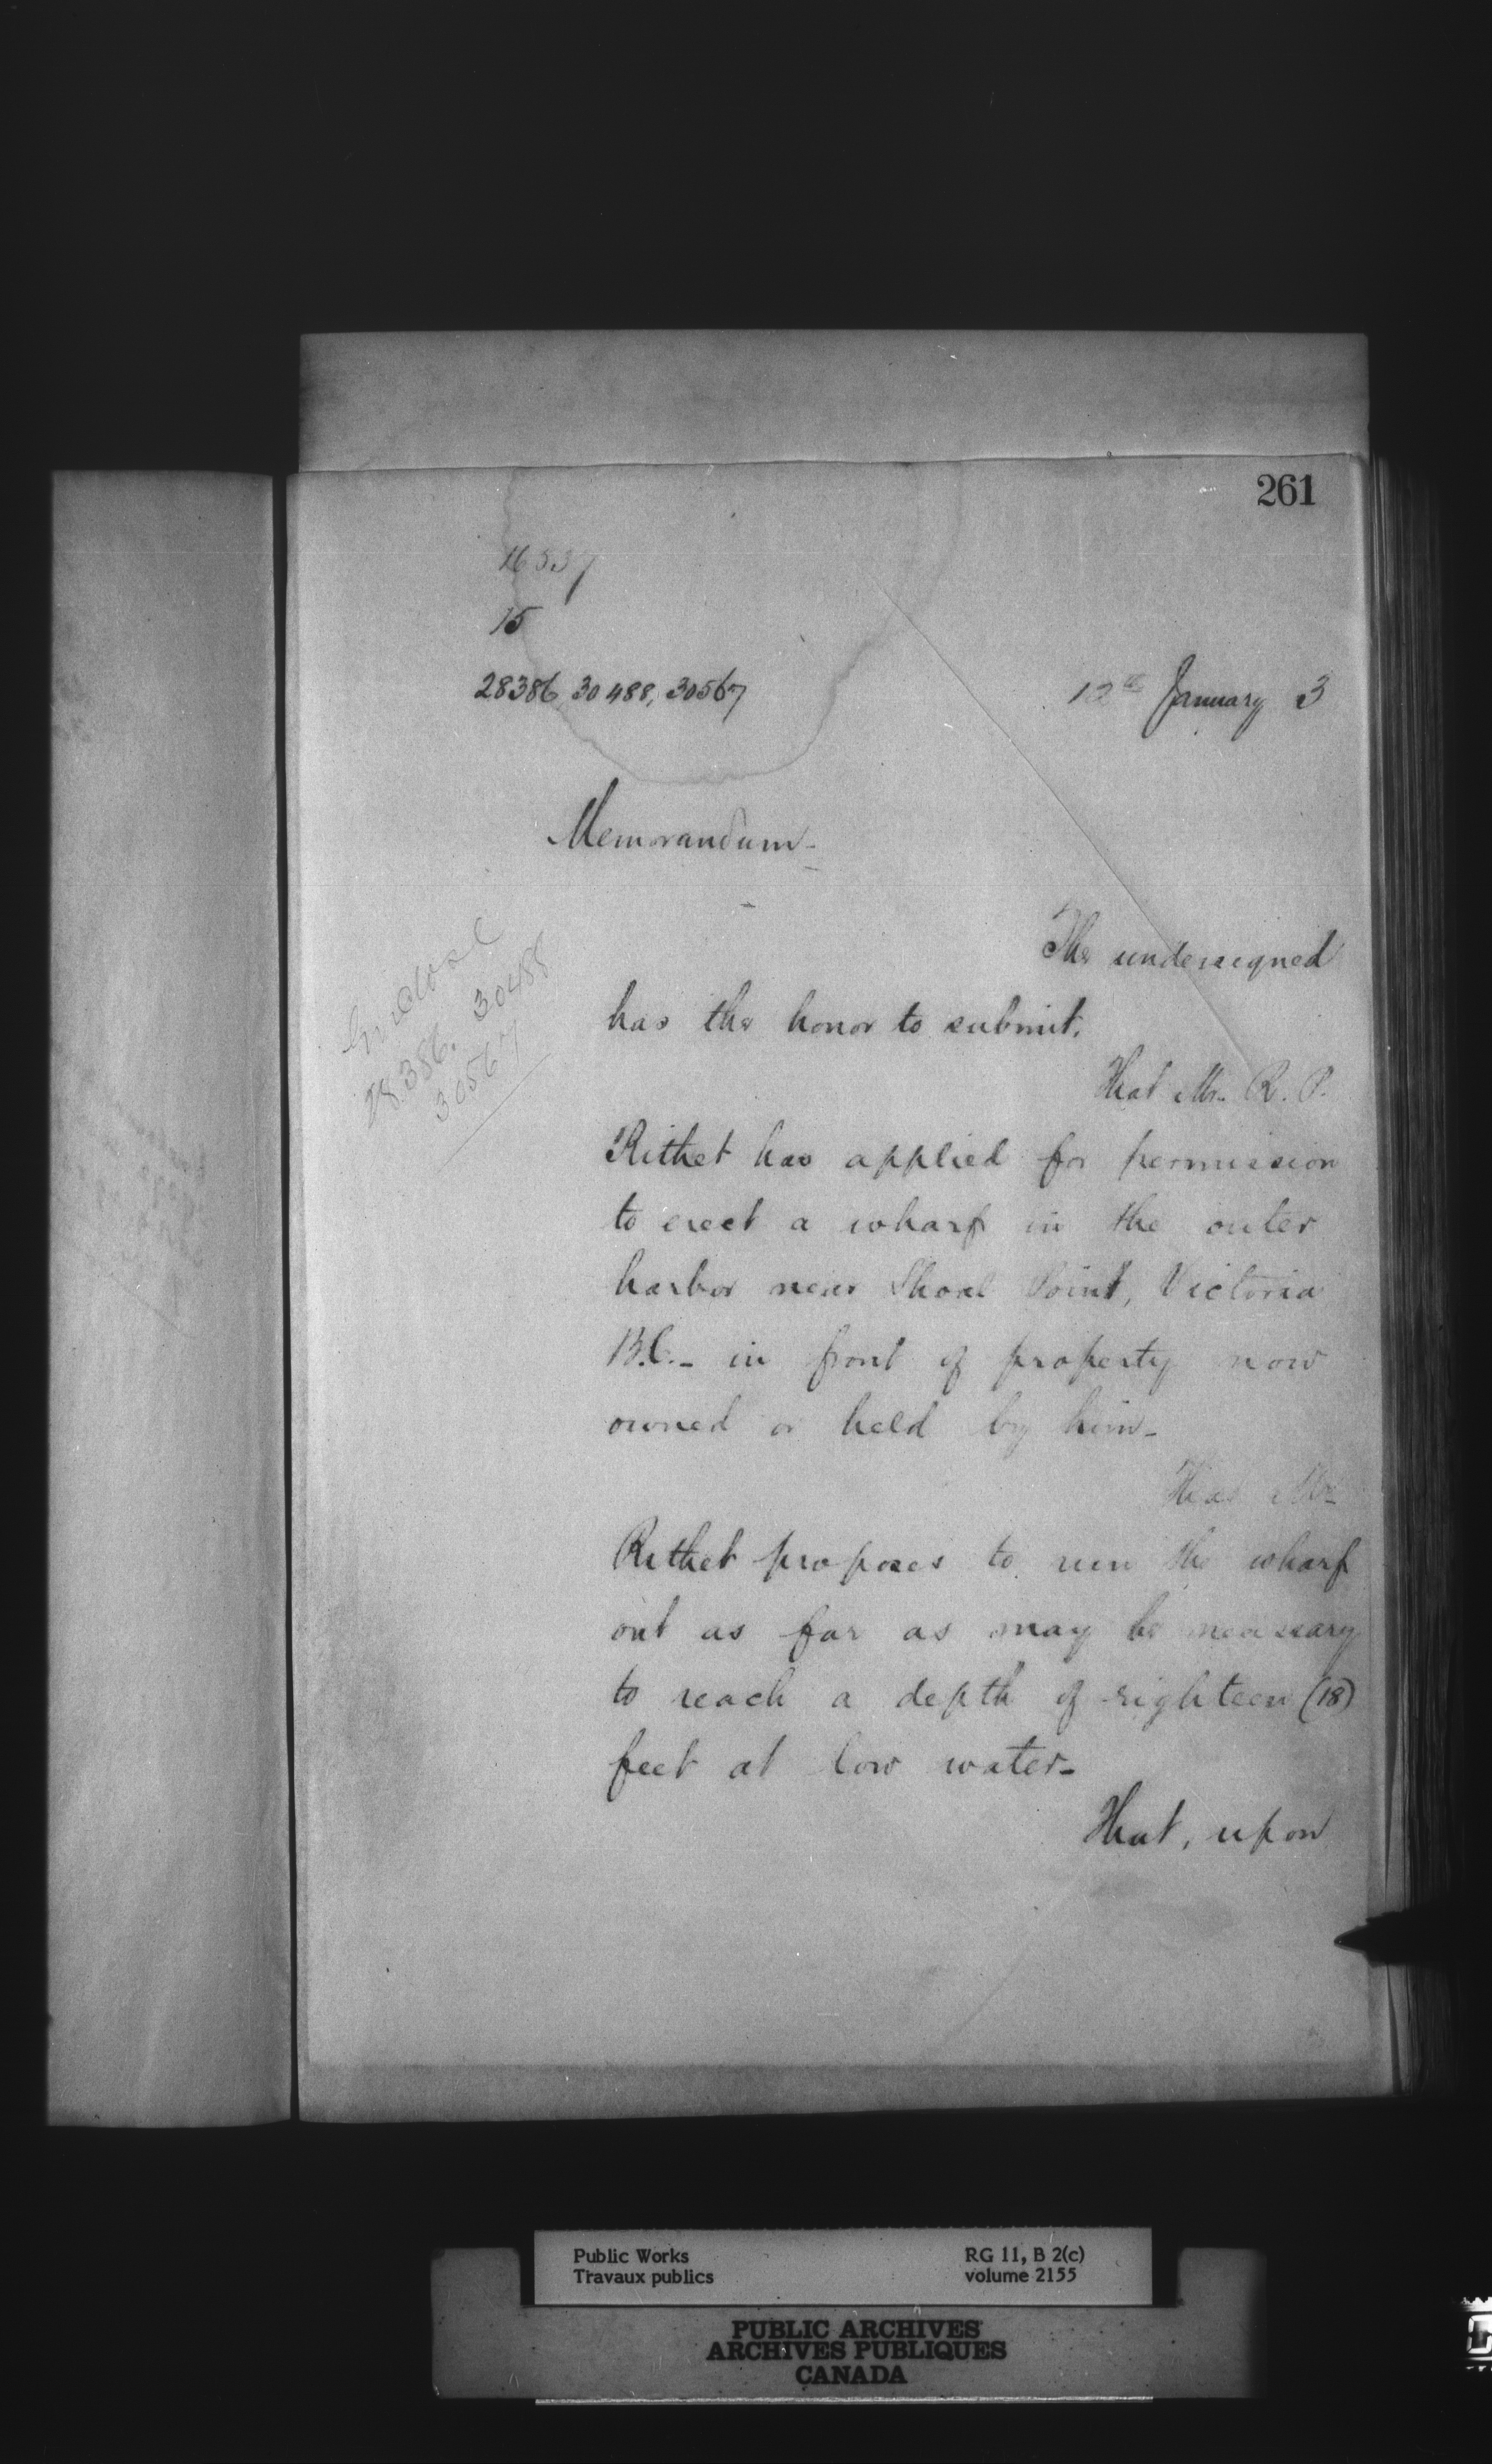 261
16537
15
28386, 30488, 30567
12th January 3
Memorandum-
28386. 30488
30567
The undersigned
has the honor to submit.
That Mr. R. P.
Rithet has applied for permission
to erect a wharf in the outer
harbor near Shoal Point, Victoria
B.C.- in front of property now
owned or held by him-
That Mr.
Rithet proposes to run the wharf
out as far as may be necessary
to reach a depth of eighteen (18)
feet at low water-
That, upon
Public Works
Travaux publics
RG 11, B 2(c)
volume 2155
PUBLIC ARCHIVES
ARCHIVES PUBLIQUES
CANADA